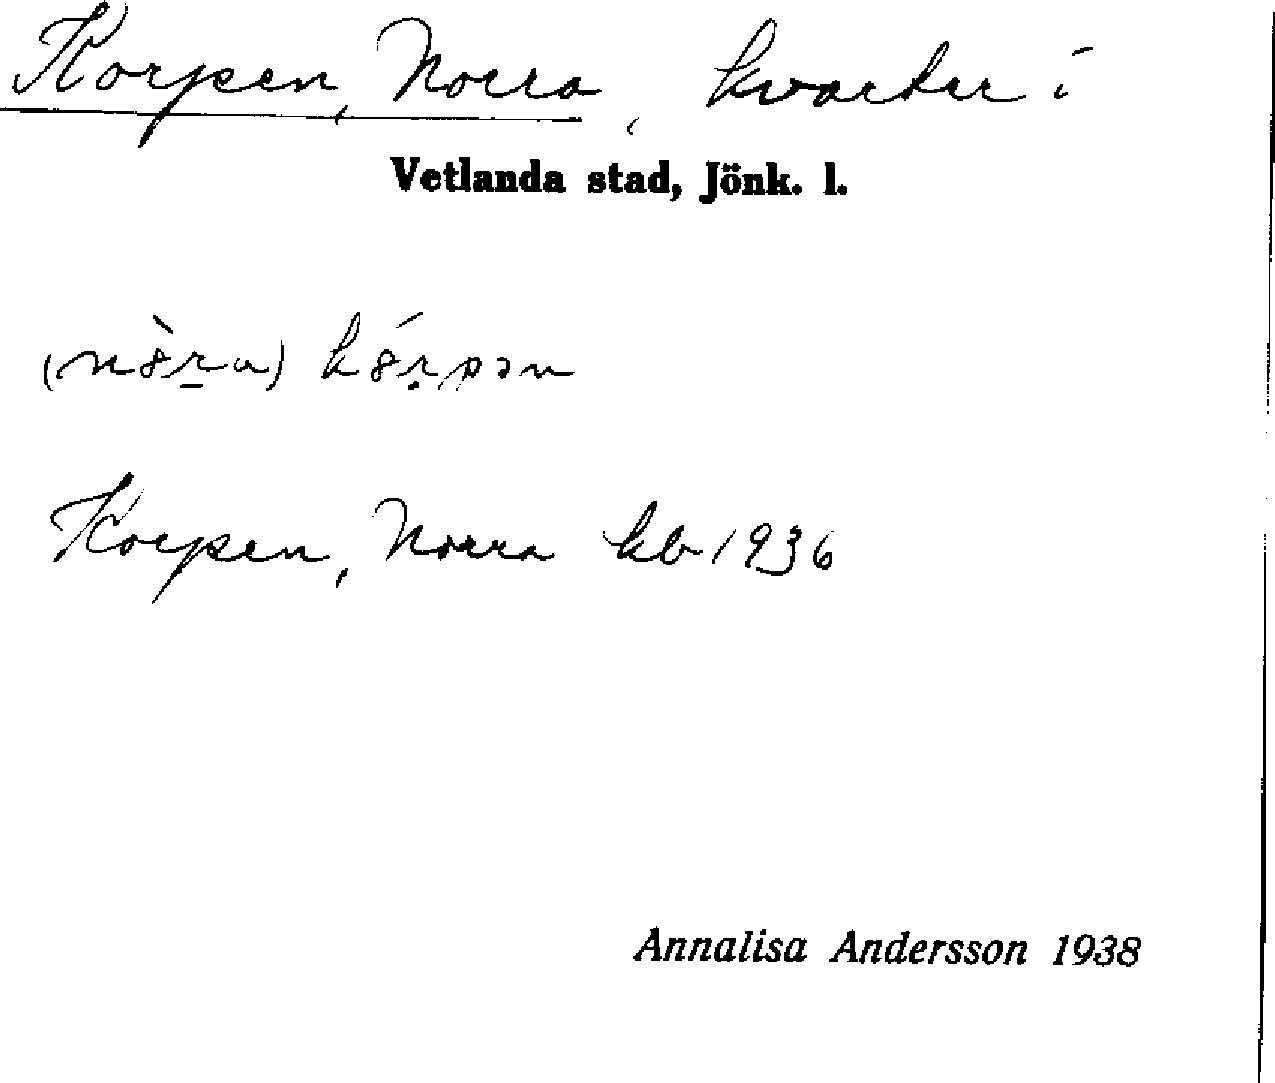 Korpen, Norra, kvarter i
Vetlanda stad, Jönk. l.
(nòr̲a) kórpən
Korpen, Norra kb 1936
Annalisa Andersson 1938